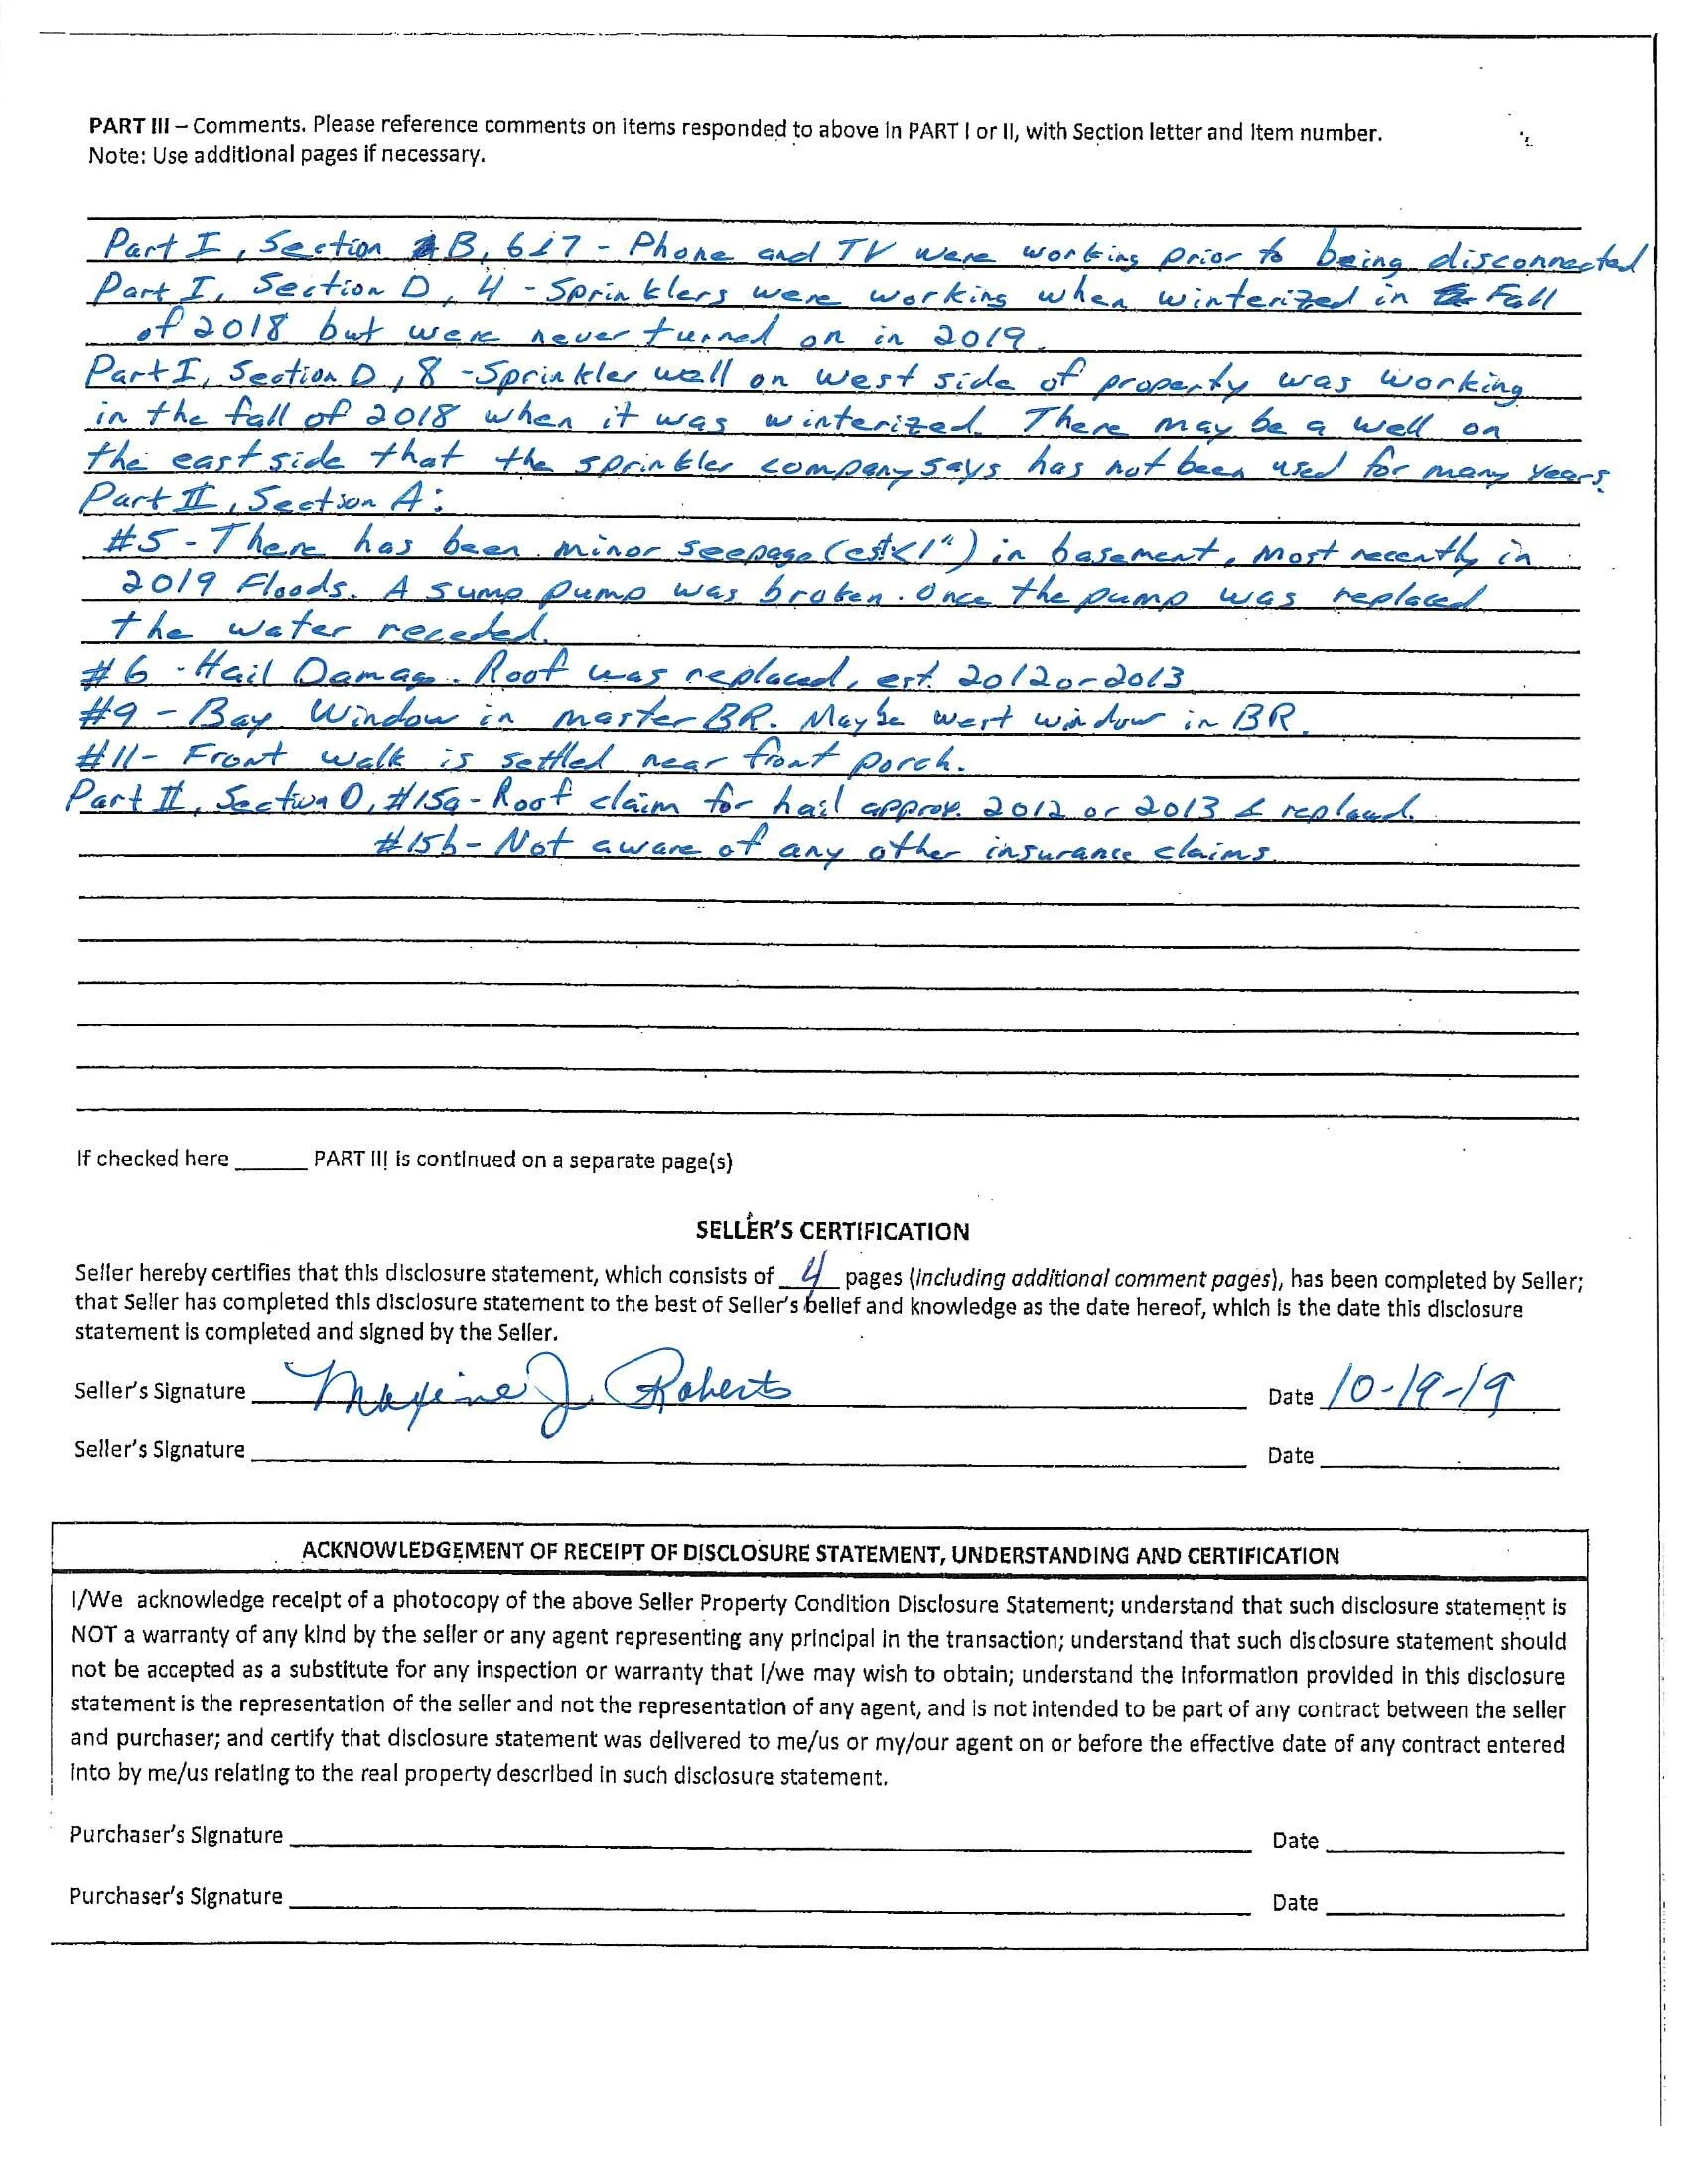 PART III – Comments. Please reference comments on items responded to above in PART I or II, with Section letter and Item number.
Note: Use additional pages if necessary.
Part I, Section B, 6&7 - Phone and TV were working prior to being disconnected
Part I, Section D, 4 - Sprinklers were working when winterized in Fall
of 2018 but were never turned on in 2019.
Part I, Section D, 8 - Sprinkler well on west side of property was working
in the fall of 2018 when it was winterized. There may be a well on
the east side that the sprinkler company says has not been used for many years.
Part II, Section A:
#5 - There has been minor seepage (est<1") in basement, most recently in
2019 Floods. A sump pump was broken. Once the pump was replaced
the water receded.
#6 - Hail Damage. Roof was replaced, est. 2012 or 2013
#9 - Bay Window in master BR. Maybe west window in BR.
#11- Front walk is settled near front porch.
Part II, Section D, #15a - Roof claim for hail approx. 2012 or 2013 & replaced.
#15b - Not aware of any other insurance claims.
If checked here ______ PART III is continued on a separate page(s)
SELLER'S CERTIFICATION
Seller hereby certifies that this disclosure statement, which consists of 4 pages (including additional comment pages), has been completed by Seller;
that Seller has completed this disclosure statement to the best of Seller's belief and knowledge as the date hereof, which is the date this disclosure
statement is completed and signed by the Seller.
Seller's Signature Maxine J. Roberts Date 10-19-19
Seller's Signature Date
ACKNOWLEDGEMENT OF RECEIPT OF DISCLOSURE STATEMENT, UNDERSTANDING AND CERTIFICATION
I/We acknowledge receipt of a photocopy of the above Seller Property Condition Disclosure Statement; understand that such disclosure statement is
NOT a warranty of any kind by the seller or any agent representing any principal in the transaction; understand that such disclosure statement should
not be accepted as a substitute for any inspection or warranty that I/we may wish to obtain; understand the information provided in this disclosure
statement is the representation of the seller and not the representation of any agent, and is not intended to be part of any contract between the seller
and purchaser; and certify that disclosure statement was delivered to me/us or my/our agent on or before the effective date of any contract entered
into by me/us relating to the real property described in such disclosure statement.
Purchaser's Signature Date
Purchaser's Signature Date